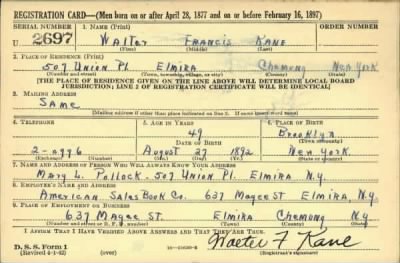 REGISTRATION CARD—(Men born on or after April 28, 1877 and on or before February 16, 1897)
SERIAL NUMBER 1. NAME (Print) ORDER NUMBER
U 2697 Walter Francis Kane
(First) (Middle) (Last)
2. PLACE OF RESIDENCE (Print)
507 Union Pl. Elmira Chemung New York
(Number and street) (Town, township, village, or city) (County) (State)
[THE PLACE OF RESIDENCE GIVEN ON THE LINE ABOVE WILL DETERMINE LOCAL BOARD
JURISDICTION; LINE 2 OF REGISTRATION CERTIFICATE WILL BE IDENTICAL]
3. MAILING ADDRESS
Same
[Mailing address if other than place indicated on line 2. If same insert word same]
4. TELEPHONE 5. AGE IN YEARS 6. PLACE OF BIRTH
49 Brooklyn
DATE OF BIRTH (Town or county)
August 27 1892 New York
(Exchange) (Number) (Mo.) (Day) (Yr.) (State or country)
7. NAME AND ADDRESS OF PERSON WHO WILL ALWAYS KNOW YOUR ADDRESS
Mary L. Pollock - 507 Union Pl. Elmira N.Y.
8. EMPLOYER'S NAME AND ADDRESS
American Sales Book Co. 637 Magee St Elmira, N.Y.
9. PLACE OF EMPLOYMENT OR BUSINESS
637 Magee St. Elmira Chemung N.Y.
(Number and street or R. F. D. number) (Town) (County) (State)
I AFFIRM THAT I HAVE VERIFIED ABOVE ANSWERS AND THAT THEY ARE TRUE.
Walter F Kane
D. S. S. Form 1
(Revised 4-1-42) (over) (Registrant's signature)